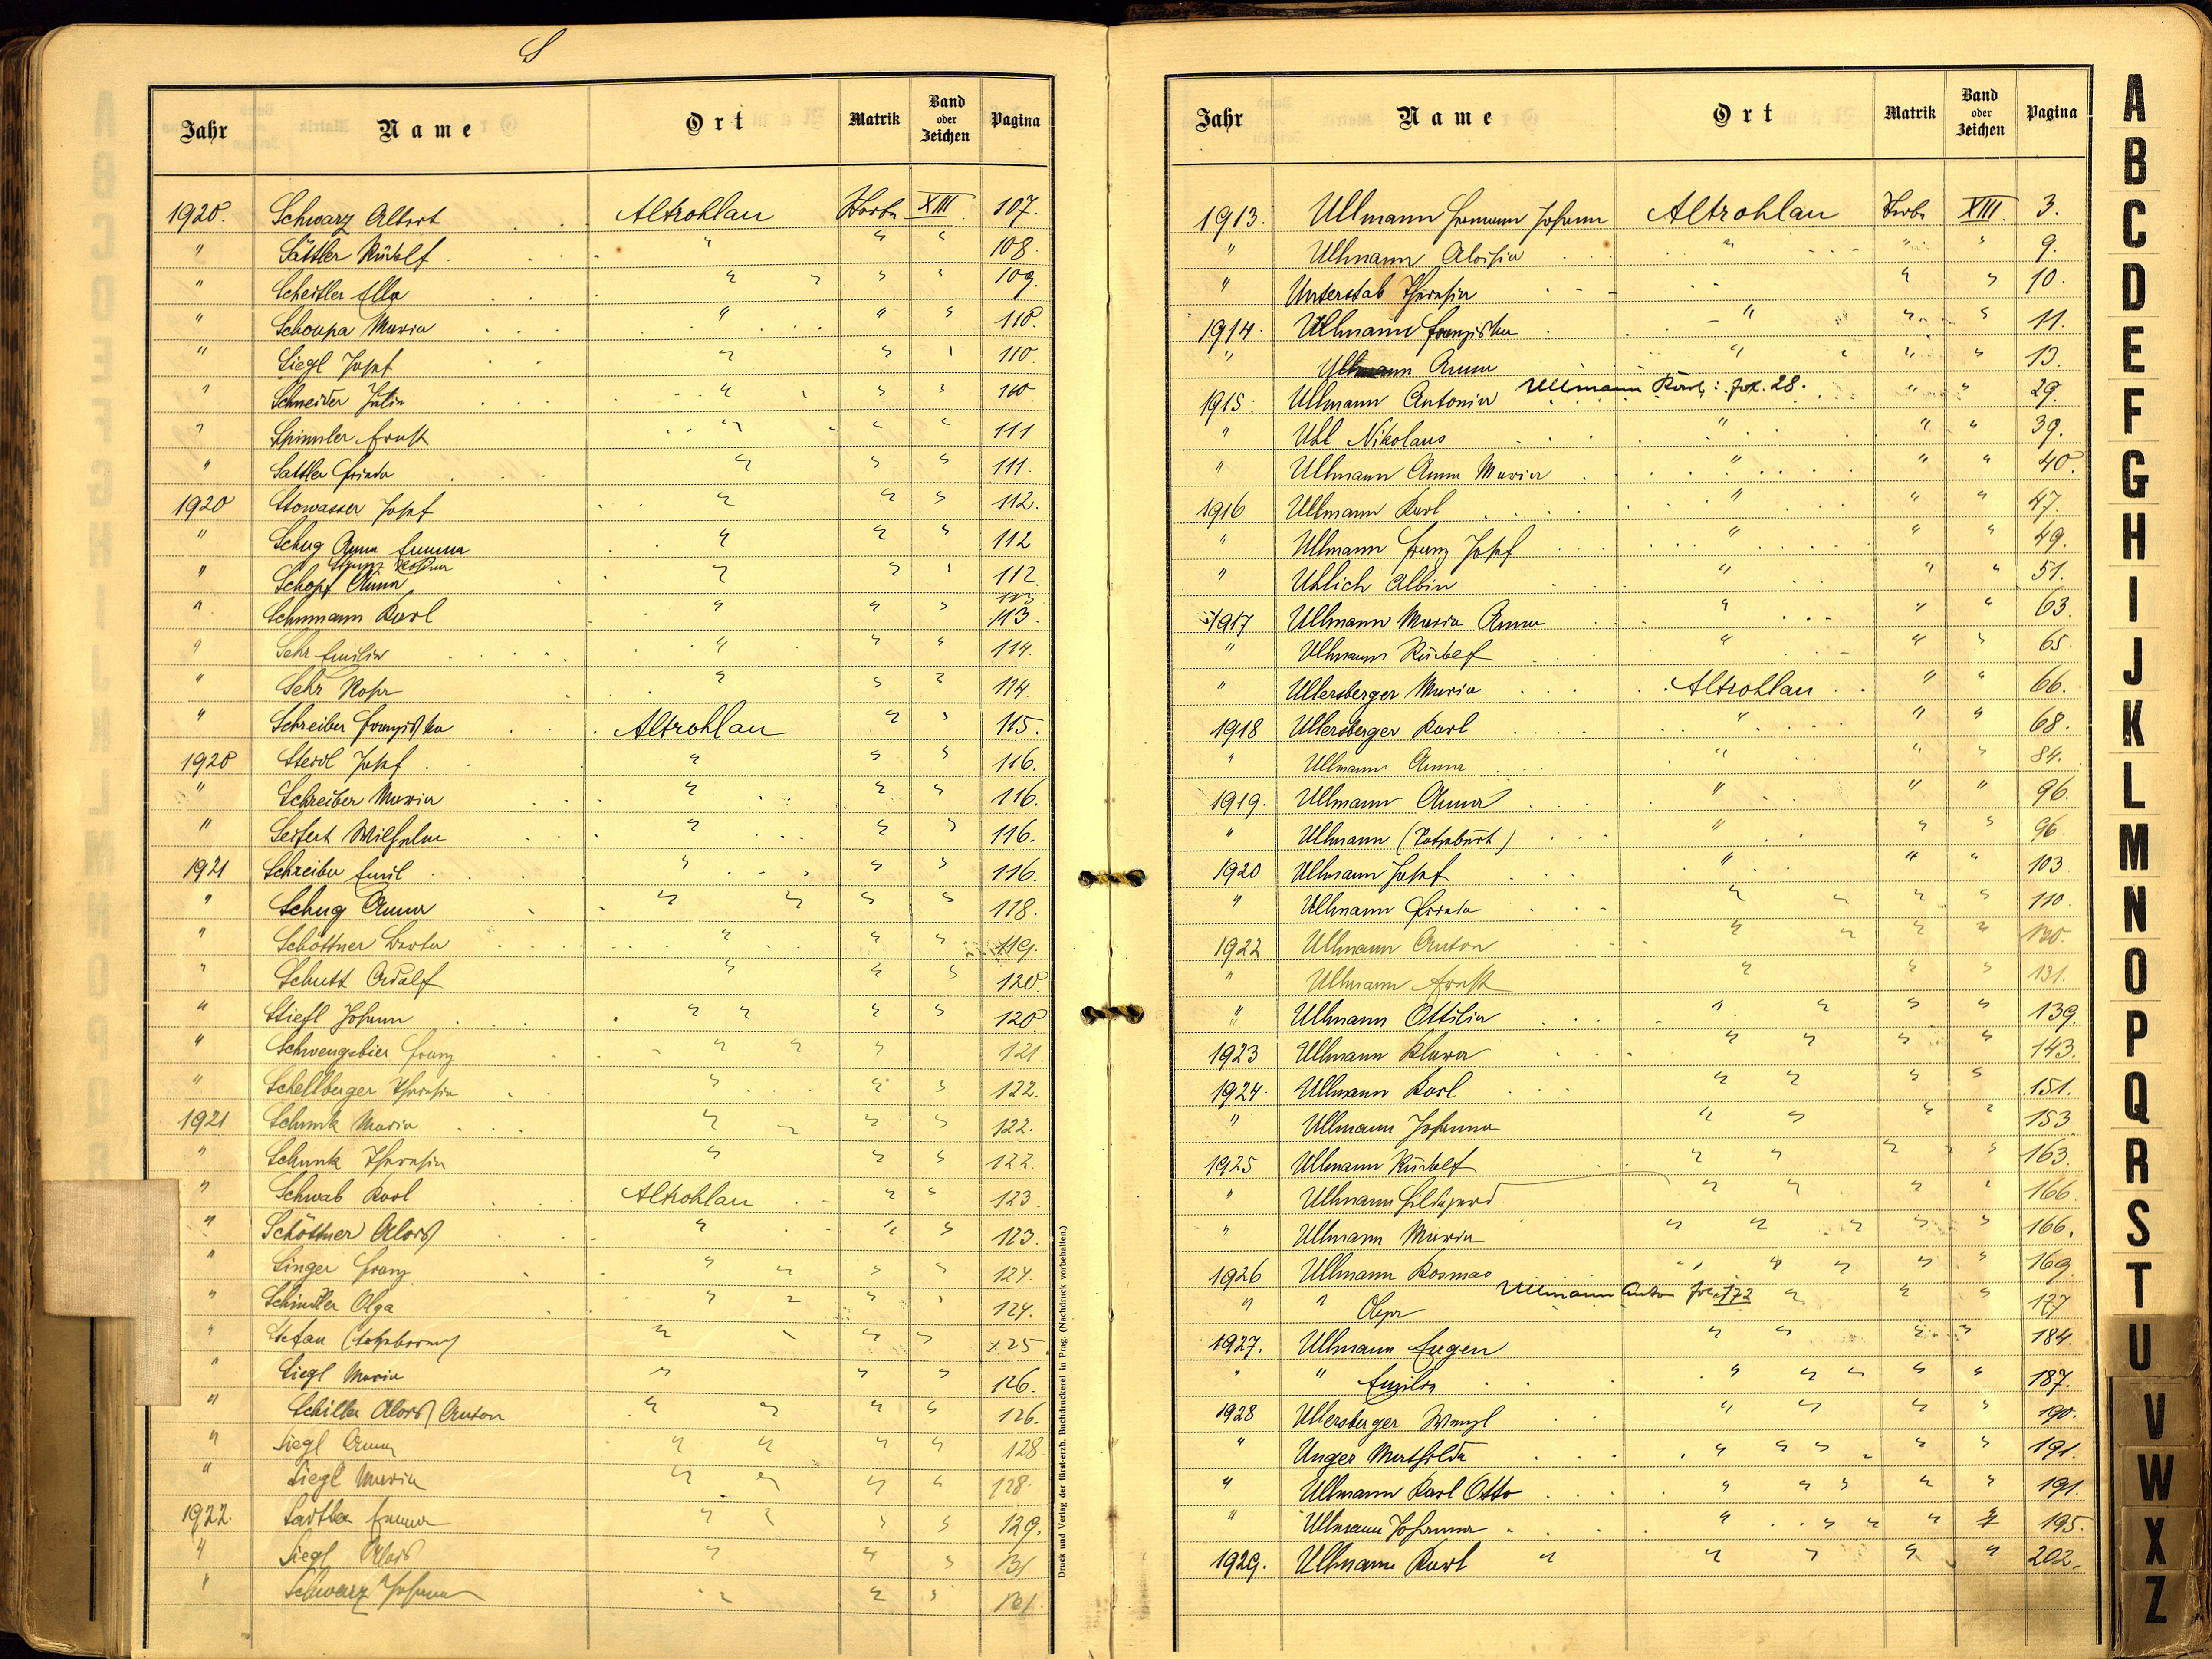 S
Jahr Name Ort Matrik Band oder Zeichen Pagina
1920. Schwarz Albert Altrohlau Sterbe XIII. 107.
" Sättler Rudolf " " " 108.
" Scheitler Ella " " " " 109.
" Schoupa Maria " " " 110.
" Siegl Josef " " " 110.
" Schneider Julia " " " 110.
" Spinnler Ernst " " " 111
" Sattler Frieda " " " 111.
1920 Stowasser Josef " " " 112.
" Schug Anna Emma " " " 112
" Schopf Anna " " " 112.
" Schumann Karl " " " 113.
" Sehr Emilie " " " 114.
" Sehr Rosa " " " 114.
" Schreiber Franziska Altrohlau " " 115.
1920 Sterdl Josef " " " 116.
" Schreiber Maria " " " 116.
" Seifert Wilhelm " " " 116.
1921 Schreiber Emil " " " 116.
" Schug Anna " " " " 118.
" Schöttner Berta " " " 119.
" Schutt Adolf " " " 120.
" Stiefl Johann " " " " 120.
" Schwengsbier Franz " " " 121.
" Schellberger Theresia " " " 122.
1921 Schunk Maria " " " " 122.
" Schunk Theresia " " " 122.
" Schwab Karl Altrohlau " " 123
" Schöttner Alois " " " 123.
" Singer Franz " " " " 124.
" Schindler Olga " " " " 124.
" Stefan (totgeboren) " " " " 125.
" Siegl Maria " " " 126.
" Schiller Alois Anton " " " " 126.
" Siegl Anna " " " " 128
" Siegl Maria " " " " 128.
1922. Sattler Emma " " " " 129.
" Siegl Alois " " " 131
" Schwarz Johann " " " 131.
Druck und Verlag der fürst-erzb. Buchdruckerei in Prag. (Nachdruck vorbehalten.)
Jahr Name Ort Matrik Band oder Zeichen Pagina
1913. Ullmann Hermann Johann Altrohlau Sterbe XIII. 3.
" Ullmann Aloisia " " " 9.
" Unterstab Theresia " " 10.
1914. Ullmann Franziska " " " 11.
" Ullmann Anna " " " 13.
Ullmann Karl: fol. 28.
1915. Ullmann Antonia " " 29.
" Uhl Nikolaus " " " 39.
" Ullmann Anna Maria " " " 40.
1916 Ullmann Karl " " " 47.
" Ullmann Franz Josef " " " 49.
" Uhlich Albin " " " 51.
1917 Ullmann Maria Anna " " " 63.
" Ullmann Rudolf " " " 65.
" Ullersberger Maria Altrohlau " " 66.
1918 Ullersberger Karl " " " 68.
" Ullmann Anna " " " 84.
1919. Ullmann Anna " " " 96.
" Ullmann (Totgeburt) " " " 96.
1920 Ullmann Josef " " " 103
" Ullmann Frieda " " " " 110
1922 Ullmann Anton " " " " 130.
" Ullmann Ernst " " " 131.
" Ullmann Ottilia " " " " 139.
1923 Ullmann Klara " " " " 143.
1924. Ullmann Karl " " " " 151.
" Ullmann Johanna " " " " 153
1925 Ullmann Rudolf " " " " " 163.
" Ullmann Hildegard " " " " 166.
" Ullmann Maria " " " " " 166.
1926 Ullmann Kosmas " " " " " 169.
Ullmann Anton fol. 172
" " Olga " " " 177
1927. Ullmann Eugen " " " " 184.
" " Emilia " " " " " 187.
1928 Ullersberger Wenzl " " " " 190.
" Unger Mathilda " " " " " 191.
" Ullmann Karl Otto " " " " " 191.
" Ullmann Johanna " " " " " 195.
1929. Ullmann Karl " " " " " 202.
A
B
C
D
E
F
G
H
I
J
K
L
M
N
O
P
Q
R
S
T
U
V
W
X
Z